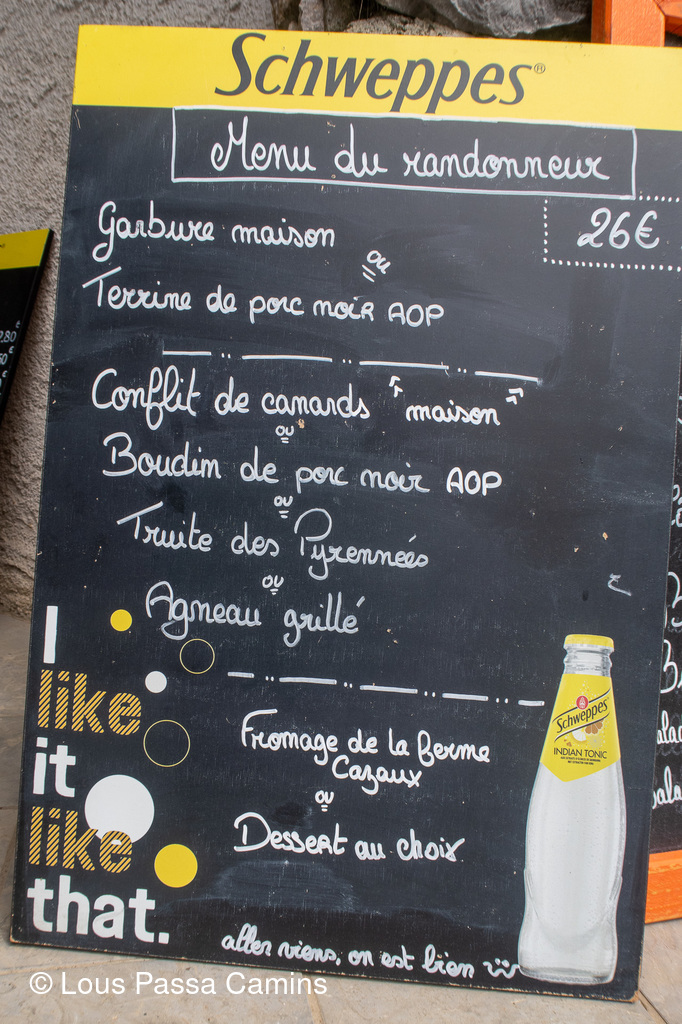 Schweppes®
Menu du randonneur
26€
Garbure maison
ou
Terrine de porc noir AOP
Conflit de canards "maison"
ou
Boudin de porc noir AOP
ou
Truite des Pyrennées
ou
Agneau grillé
Fromage de la ferme
Cazaux
ou
Dessert au choix
allen viens, on est bien
I
like
it
like
that.
Schweppes
INDIAN TONIC
© Lous Passa Camins